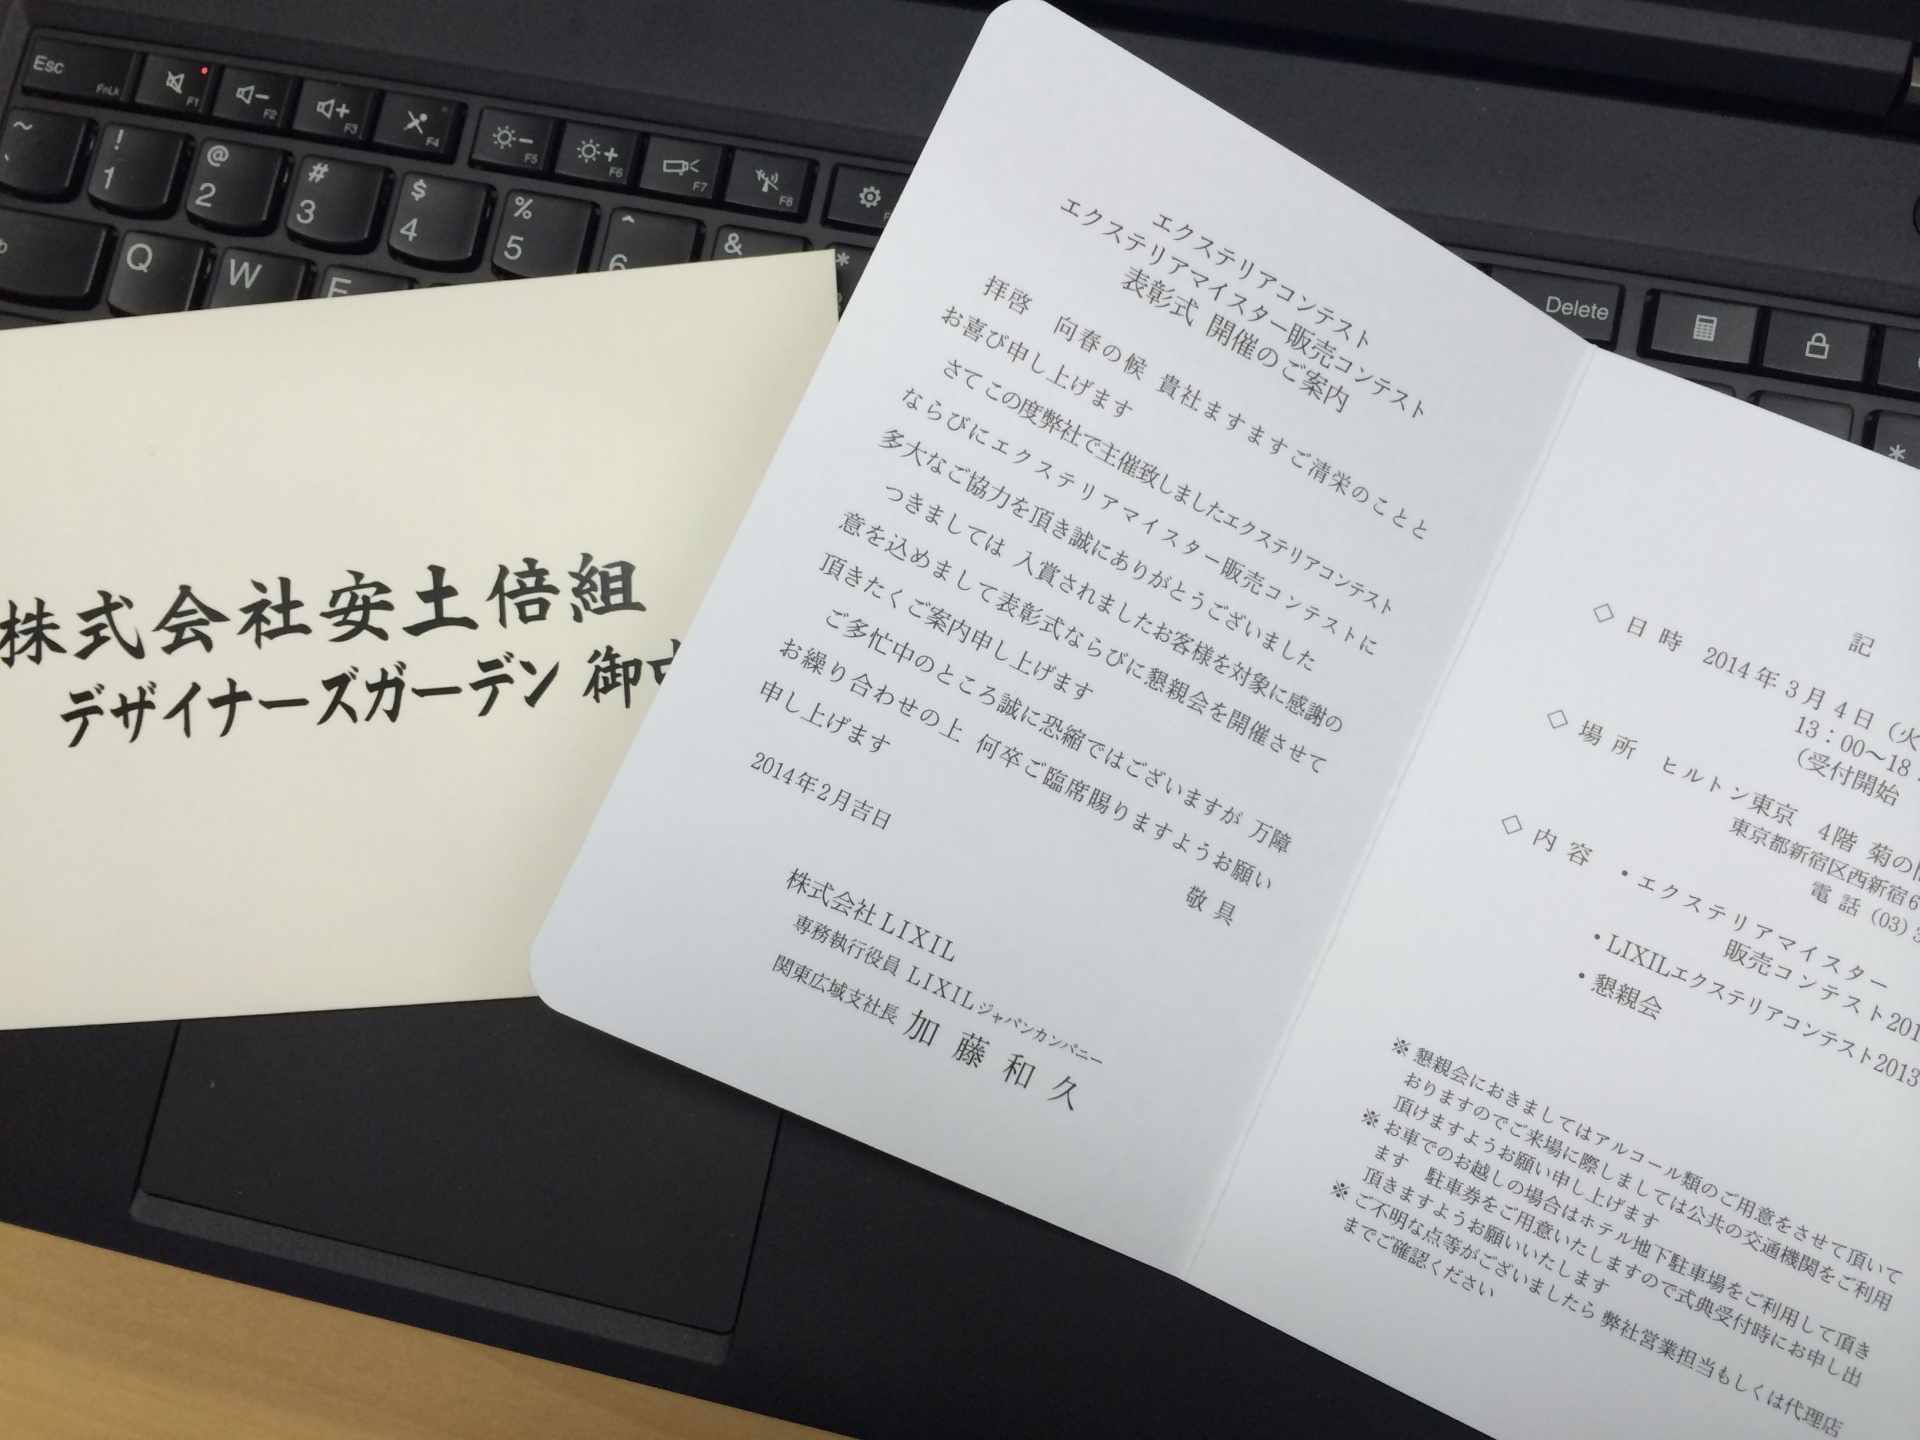 Esc
FnLk
F1
F2
F3
F4
F5
F6
F7
F8
~
! 1
@ 2
# 3
$ 4
% 5
^ 6
&
*
Q
W
E
Delete
*
株式会社安土倍組
デザイナーズガーデン 御
エクステリアコンテスト
エクステリアマイスター販売コンテスト
表彰式 開催のご案内
拝啓 向春の候 貴社ますますご清栄のことと
お喜び申し上げます
さてこの度弊社で主催致しましたエクステリアコンテスト
ならびにエクステリアマイスター販売コンテストに
多大なご協力を頂き誠にありがとうございました
つきましては 入賞されましたお客様を対象に感謝の
意を込めまして表彰式ならびに懇親会を開催させて
頂きたくご案内申し上げます
ご多忙中のところ誠に恐縮ではございますが 万障
お繰り合わせの上 何卒ご臨席賜りますようお願い
申し上げます
敬具
2014年2月吉日
株式会社LIXIL
専務執行役員 LIXILジャパンカンパニー
関東広域支社長 加藤和久
記
◇日時 2014年3月4日(火
13:00〜18:
(受付開始
◇場所 ヒルトン東京 4階 菊の
東京都新宿区西新宿6
電話 (03) 3
◇内容 ・エクステリアマイスター
販売コンテスト201
・LIXILエクステリアコンテスト2013
・懇親会
※懇親会におきましてはアルコール類のご用意をさせて頂いて
おりますのでご来場に際しましては公共の交通機関をご利用
頂けますようお願い申し上げます
※お車でのお越しの場合はホテル地下駐車場をご利用して頂き
ます 駐車券をご用意いたしますので式典受付時にお申し出
頂きますようお願いいたします
※ご不明な点等がございましたら 弊社営業担当もしくは代理店
までご確認ください